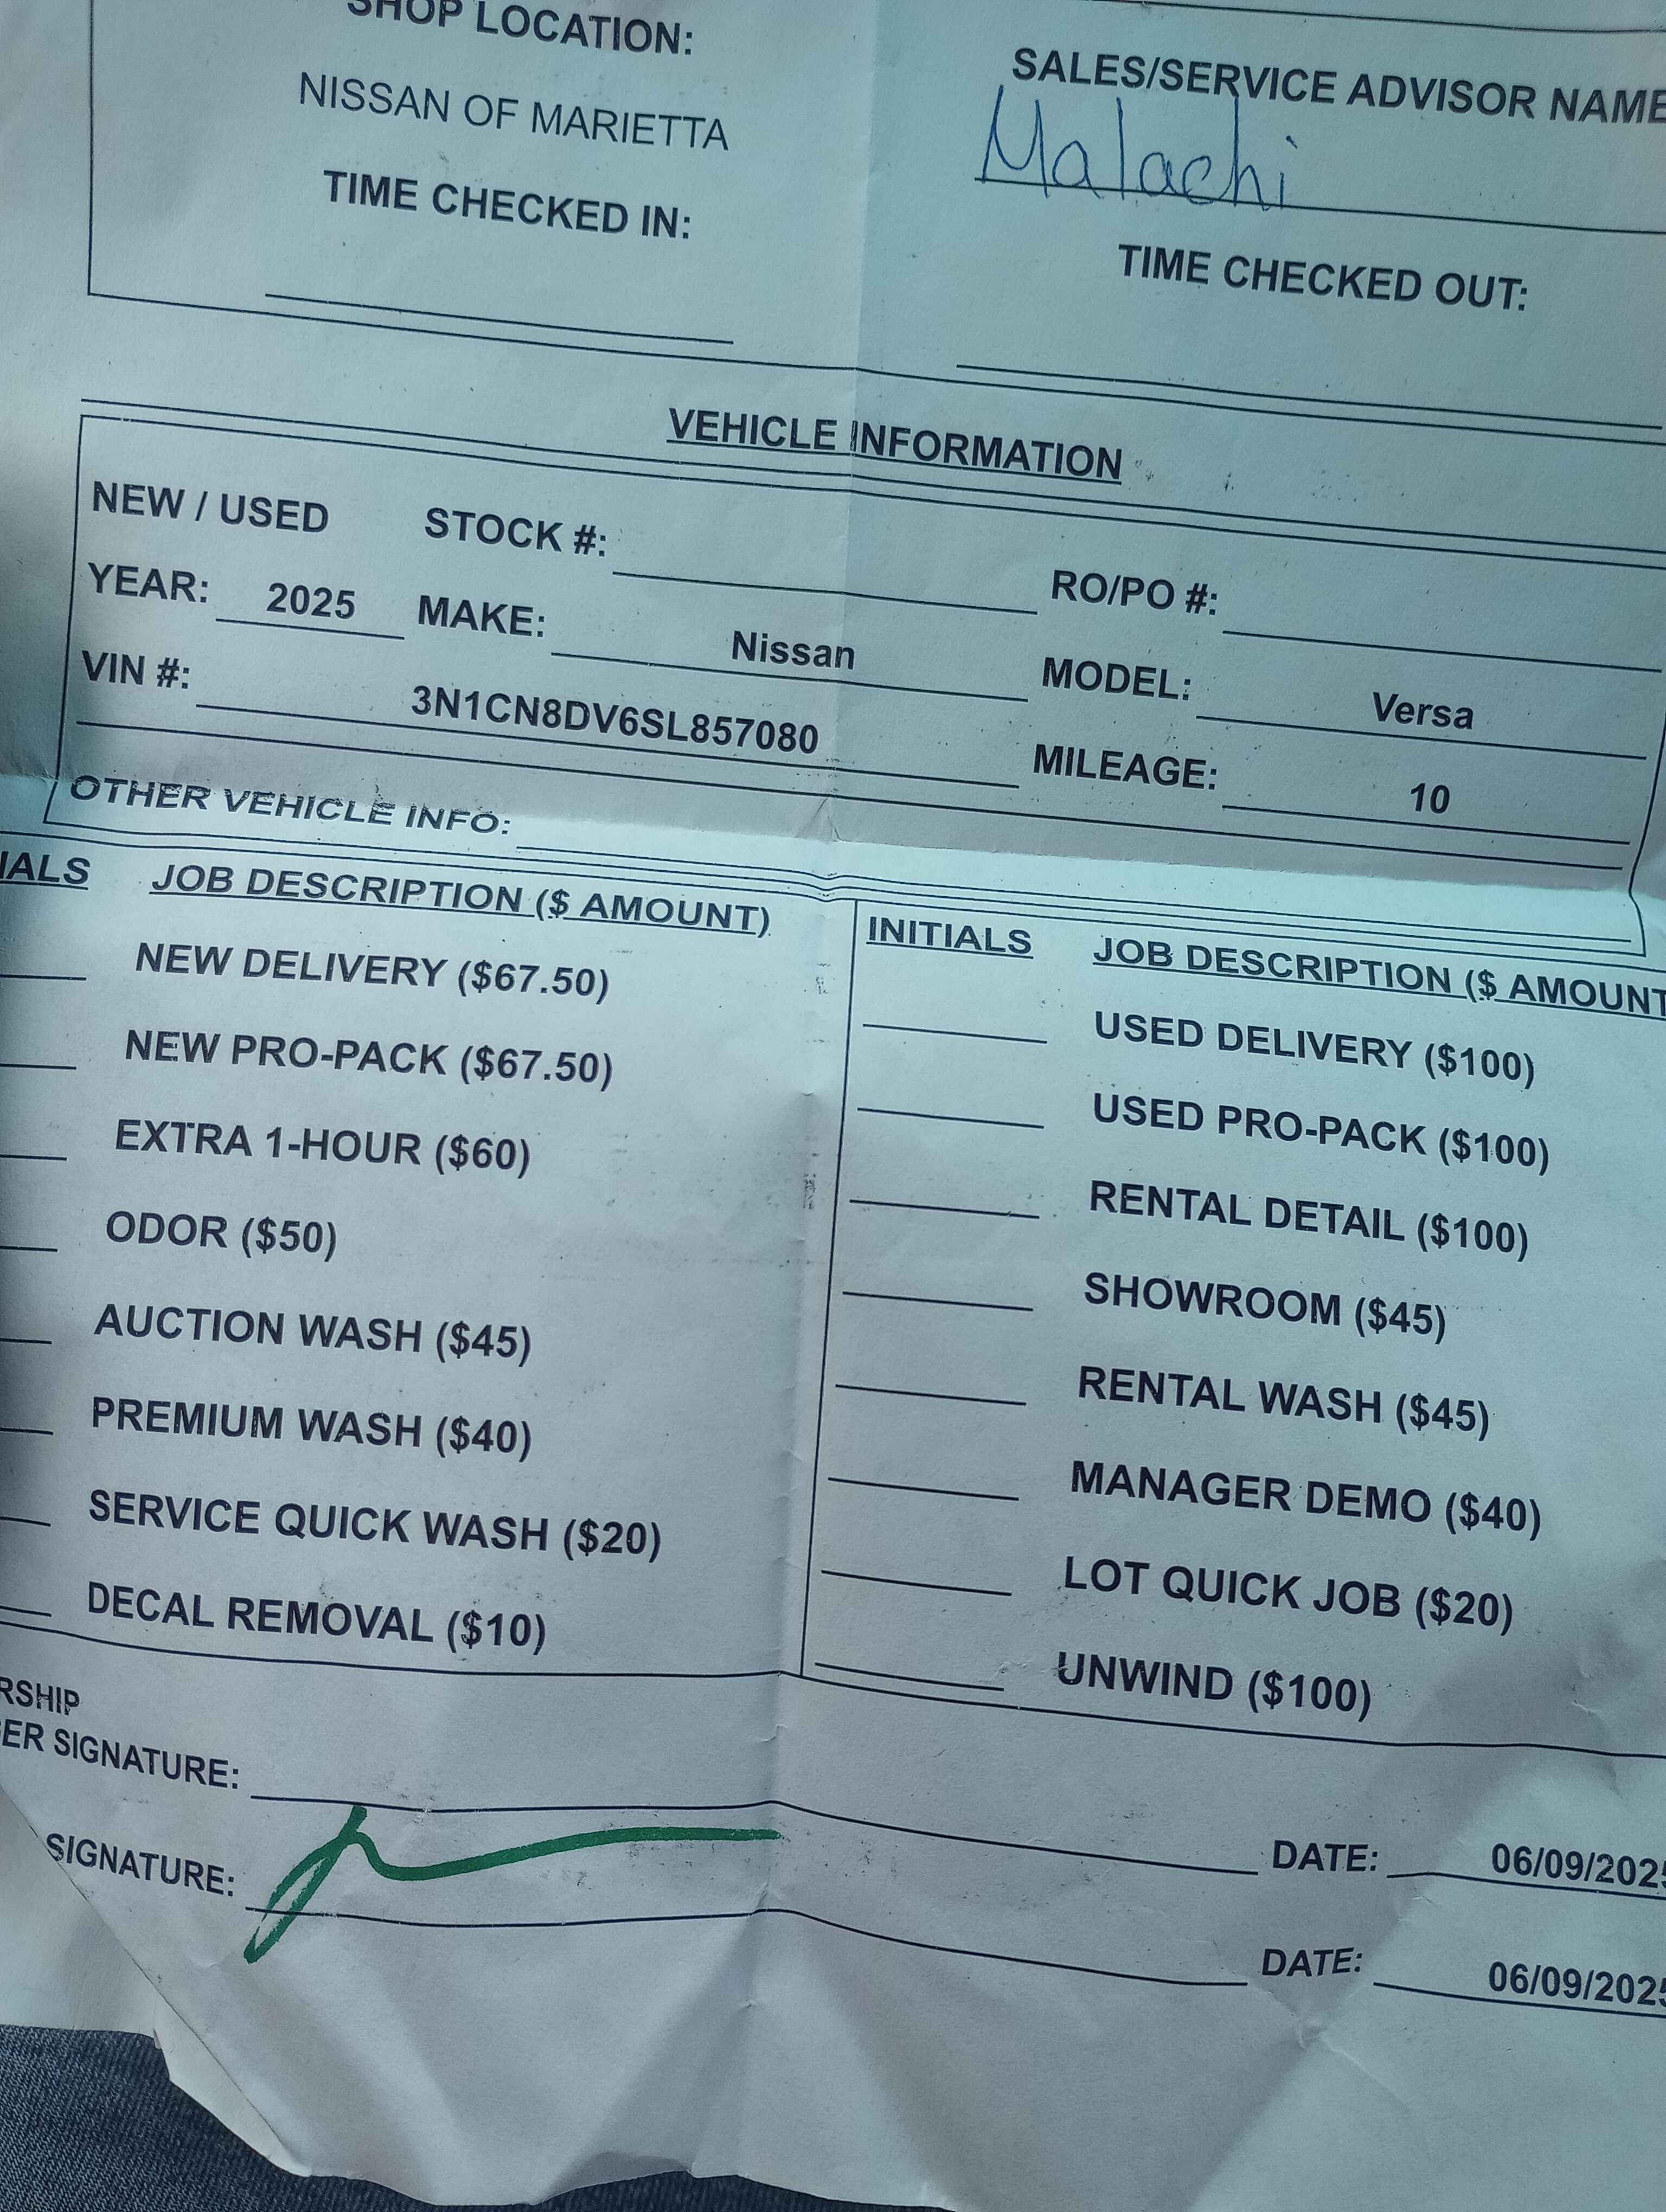 SHOP LOCATION:
NISSAN OF MARIETTA
TIME CHECKED IN:
SALES/SERVICE ADVISOR NAME
Malachi
TIME CHECKED OUT:
VEHICLE INFORMATION
NEW / USED STOCK #: RO/PO #:
YEAR: 2025 MAKE: Nissan MODEL: Versa
VIN #: 3N1CN8DV6SL857080 MILEAGE: 10
OTHER VEHICLE INFO:
IALS JOB DESCRIPTION ($ AMOUNT)
NEW DELIVERY ($67.50)
NEW PRO-PACK ($67.50)
EXTRA 1-HOUR ($60)
ODOR ($50)
AUCTION WASH ($45)
PREMIUM WASH ($40)
SERVICE QUICK WASH ($20)
DECAL REMOVAL ($10)
INITIALS JOB DESCRIPTION ($ AMOUNT
USED DELIVERY ($100)
USED PRO-PACK ($100)
RENTAL DETAIL ($100)
SHOWROOM ($45)
RENTAL WASH ($45)
MANAGER DEMO ($40)
LOT QUICK JOB ($20)
UNWIND ($100)
RSHIP
ER SIGNATURE: DATE: 06/09/2025
SIGNATURE: DATE: 06/09/2025